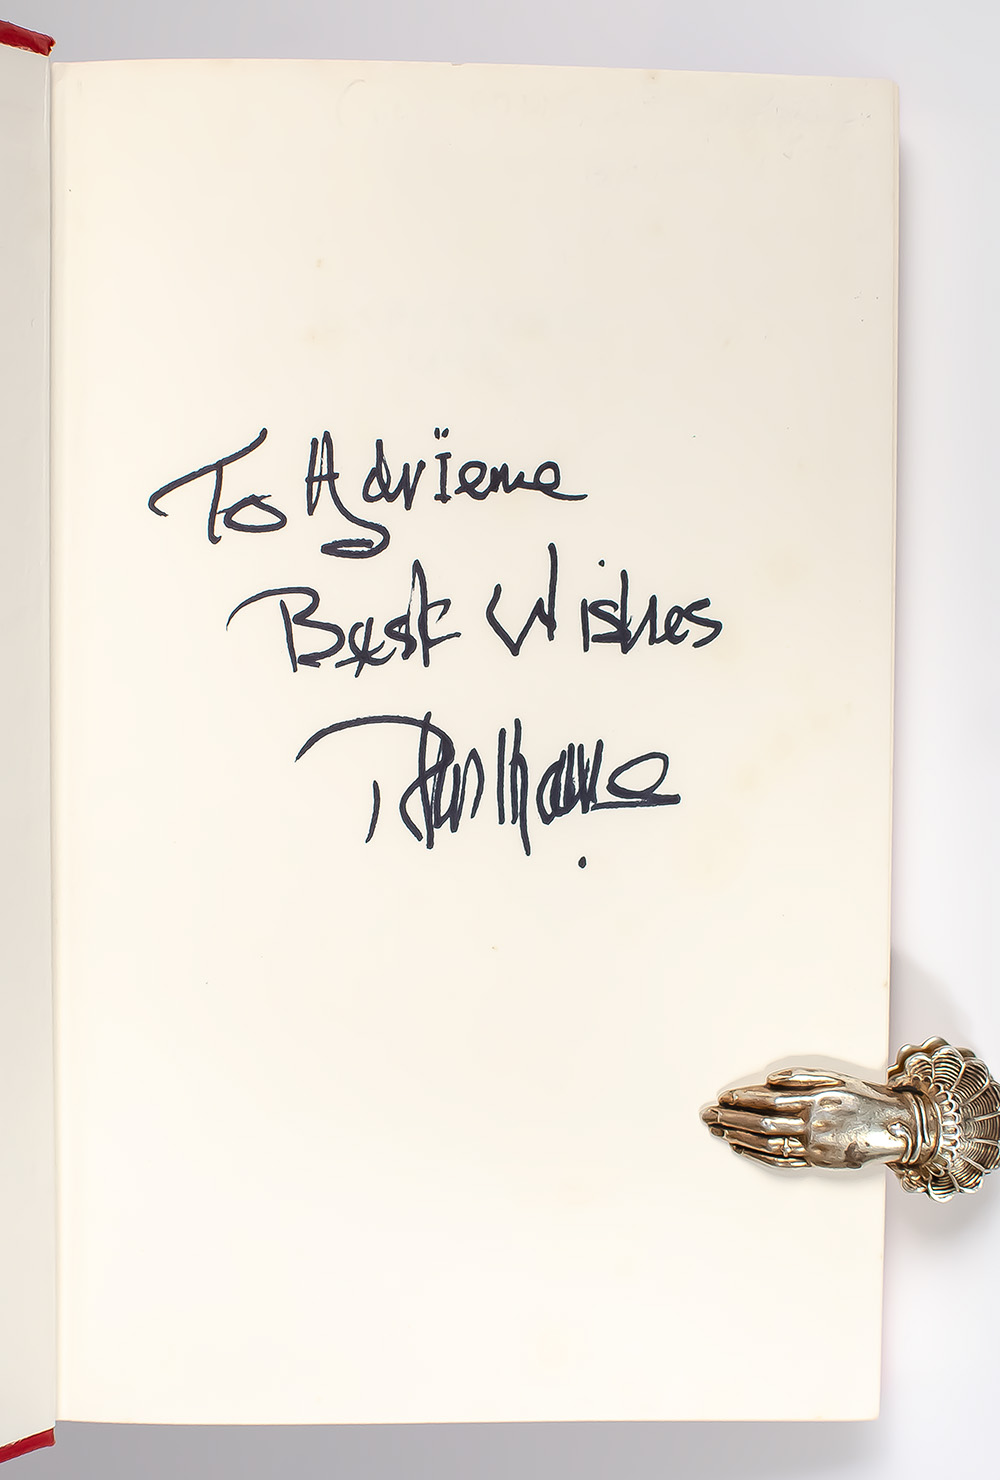 To Adrïenne
Best Wishes